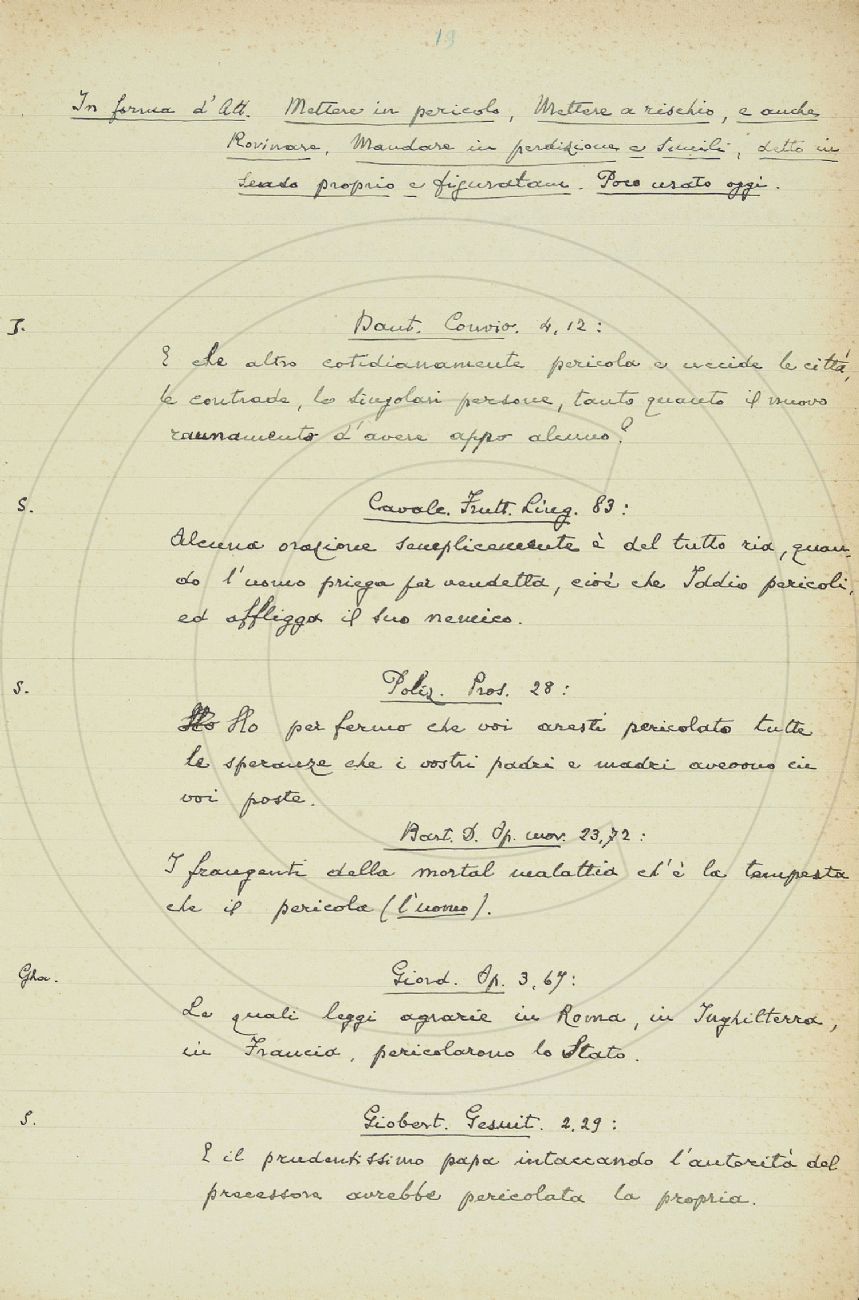 19
In forma d'Att. Mettere in pericolo, Mettere a rischio, e anche
Rovinare, Mandare in perdizione e simili; detto in
senso proprio e figuratam. Poco usato oggi.
T. Dant. Convio. 4, 12:
E che altro cotidianamente pericola e uccide le città,
le contrade, le singolari persone, tanto quanto il nuovo
raunamento d'avere appo alcuno?
S. Cavalc. Frutt. Ling. 83:
Alcuna orazione semplicemente è del tutto ria, quan-
do l'uomo priega per vendetta, cioè che Iddio pericoli,
ed affligga il suo nemico.
S. Poliz. Pros. 28:
Ho Ho per fermo che voi aresti pericolato tutte
le speranze che i vostri padri e madri avevono in
voi poste.
Bart. D. Op. mor. 23, 72:
I frangenti della mortal malattia ch'è la tempesta
che il pericola (l'uomo).
Gha. Giord. Op. 3, 67:
Le quali leggi agrarie in Roma, in Inghilterra,
in Francia, pericolarono lo Stato.
S. Giobert. Gesuit. 2.29:
E il prudentissimo papa intaccando l'autorità del
precessore avrebbe pericolata la propria.